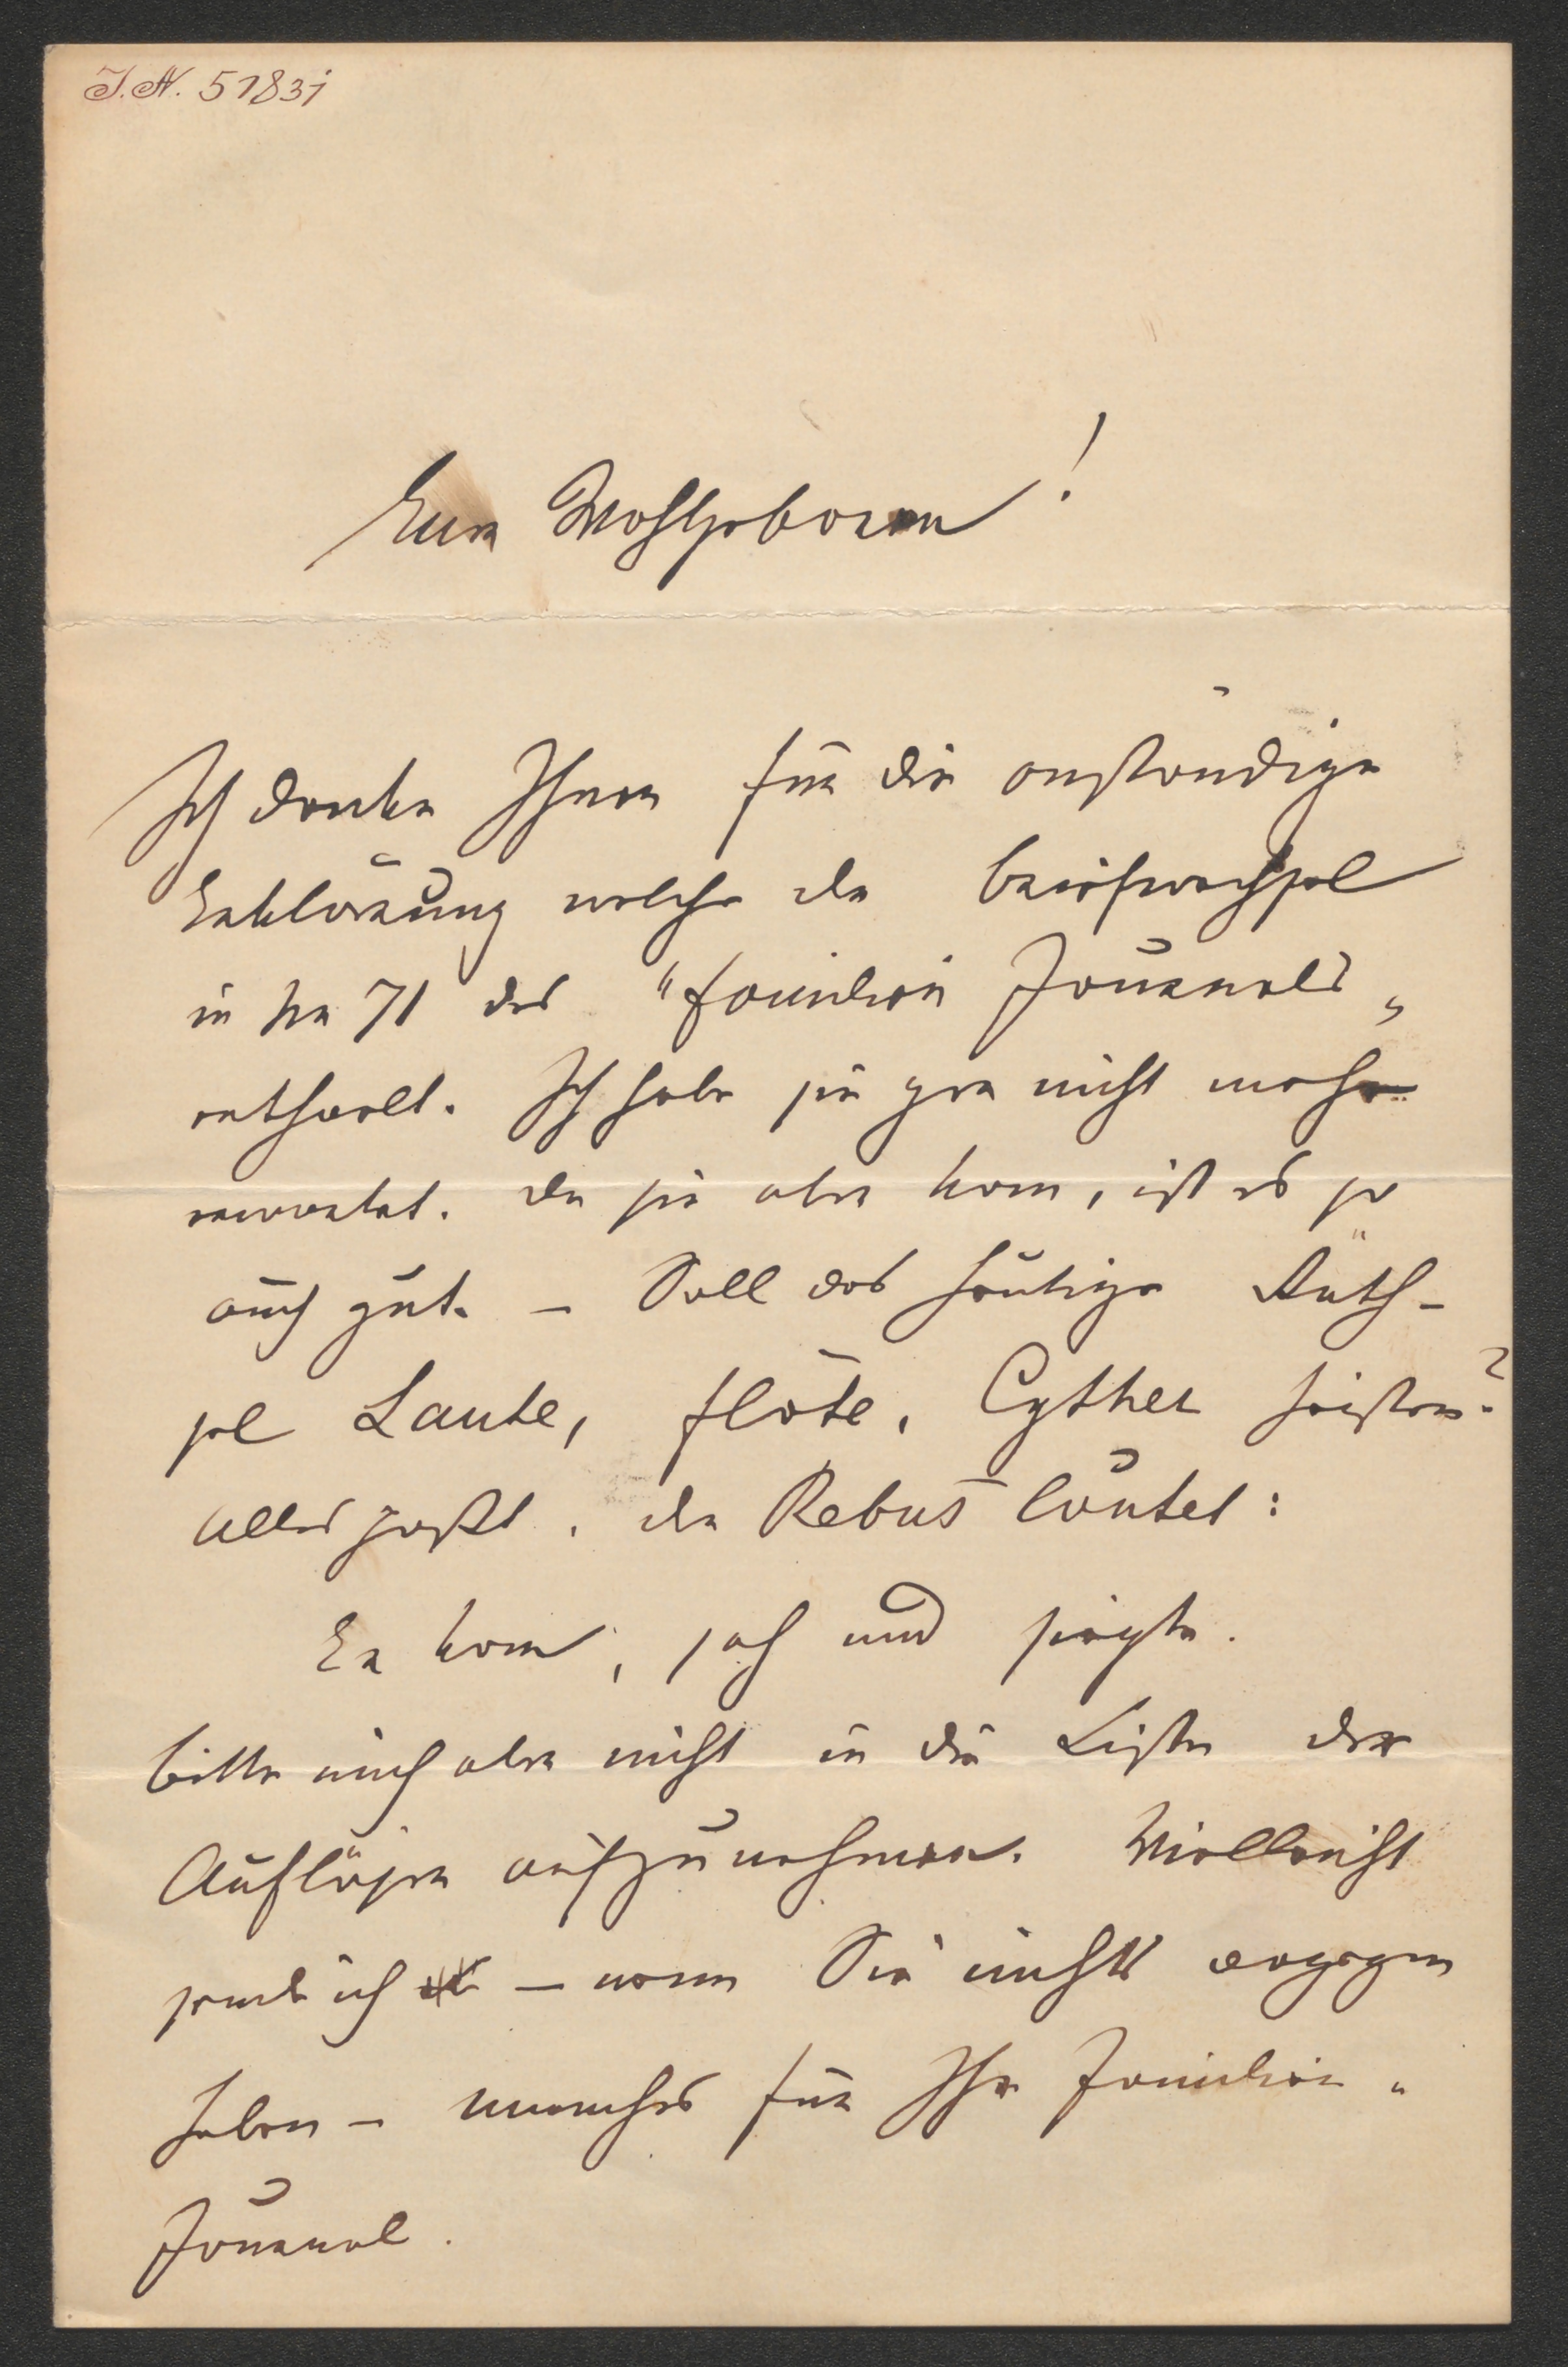 I.N. 51831
Euer Wohlgeboren!
Ich danke Ihnen für die anständige
Erklärung welche der Briefwechsel
in Nr 71 des "Familien Journals„
enthielt. Ich habe sie gar nicht mehr
erwartet. Da sie aber kam, ist es ja
auch gut. – Soll das heutige Räth-
sel Laute, Flöte, Cyther heißen?
Alles paßt. Der Rebus lautet:
Er kam, sah und siegte.
Bitte mich aber nicht in die Liste der
Auflöser aufzunehmen. Vielleicht
sende ich – wenn Sie nichts dagegen
haben – manches für Ihr Familien„
Journal.